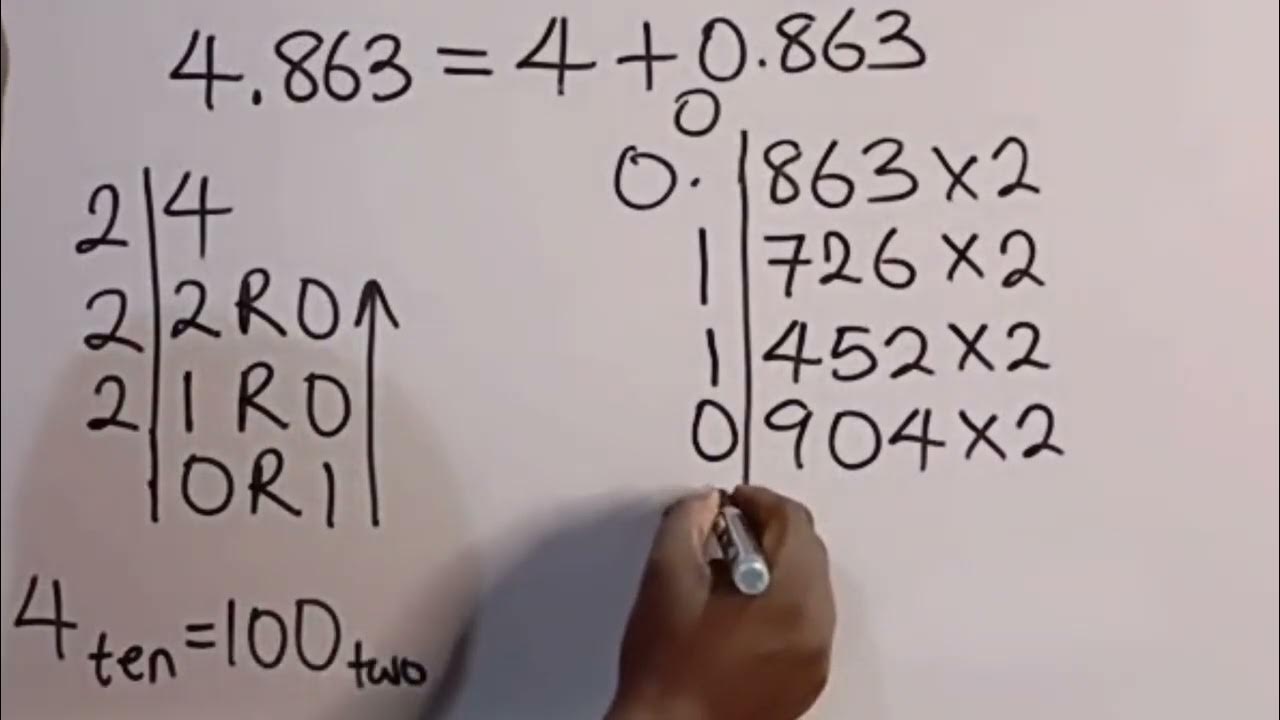 4.863 = 4 + 0.863
2 4
2 2 R 0
2 1 R 0
0 R 1
4 ten = 100 two
0
0. 863 × 2
1 726 × 2
1 452 × 2
0 904 × 2